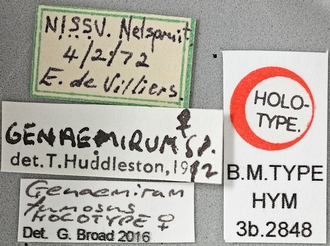 NISSV. Nelspruit,
4/2/72
E. de Villiers.
GENAEMIRUM ♀ sp.
det. T. Huddleston, 1982
Genaemirum
fumosus
HOLOTYPE ♀
Det. G. Broad 2016
HOLO-
TYPE.
B.M. TYPE
HYM
3b.2848